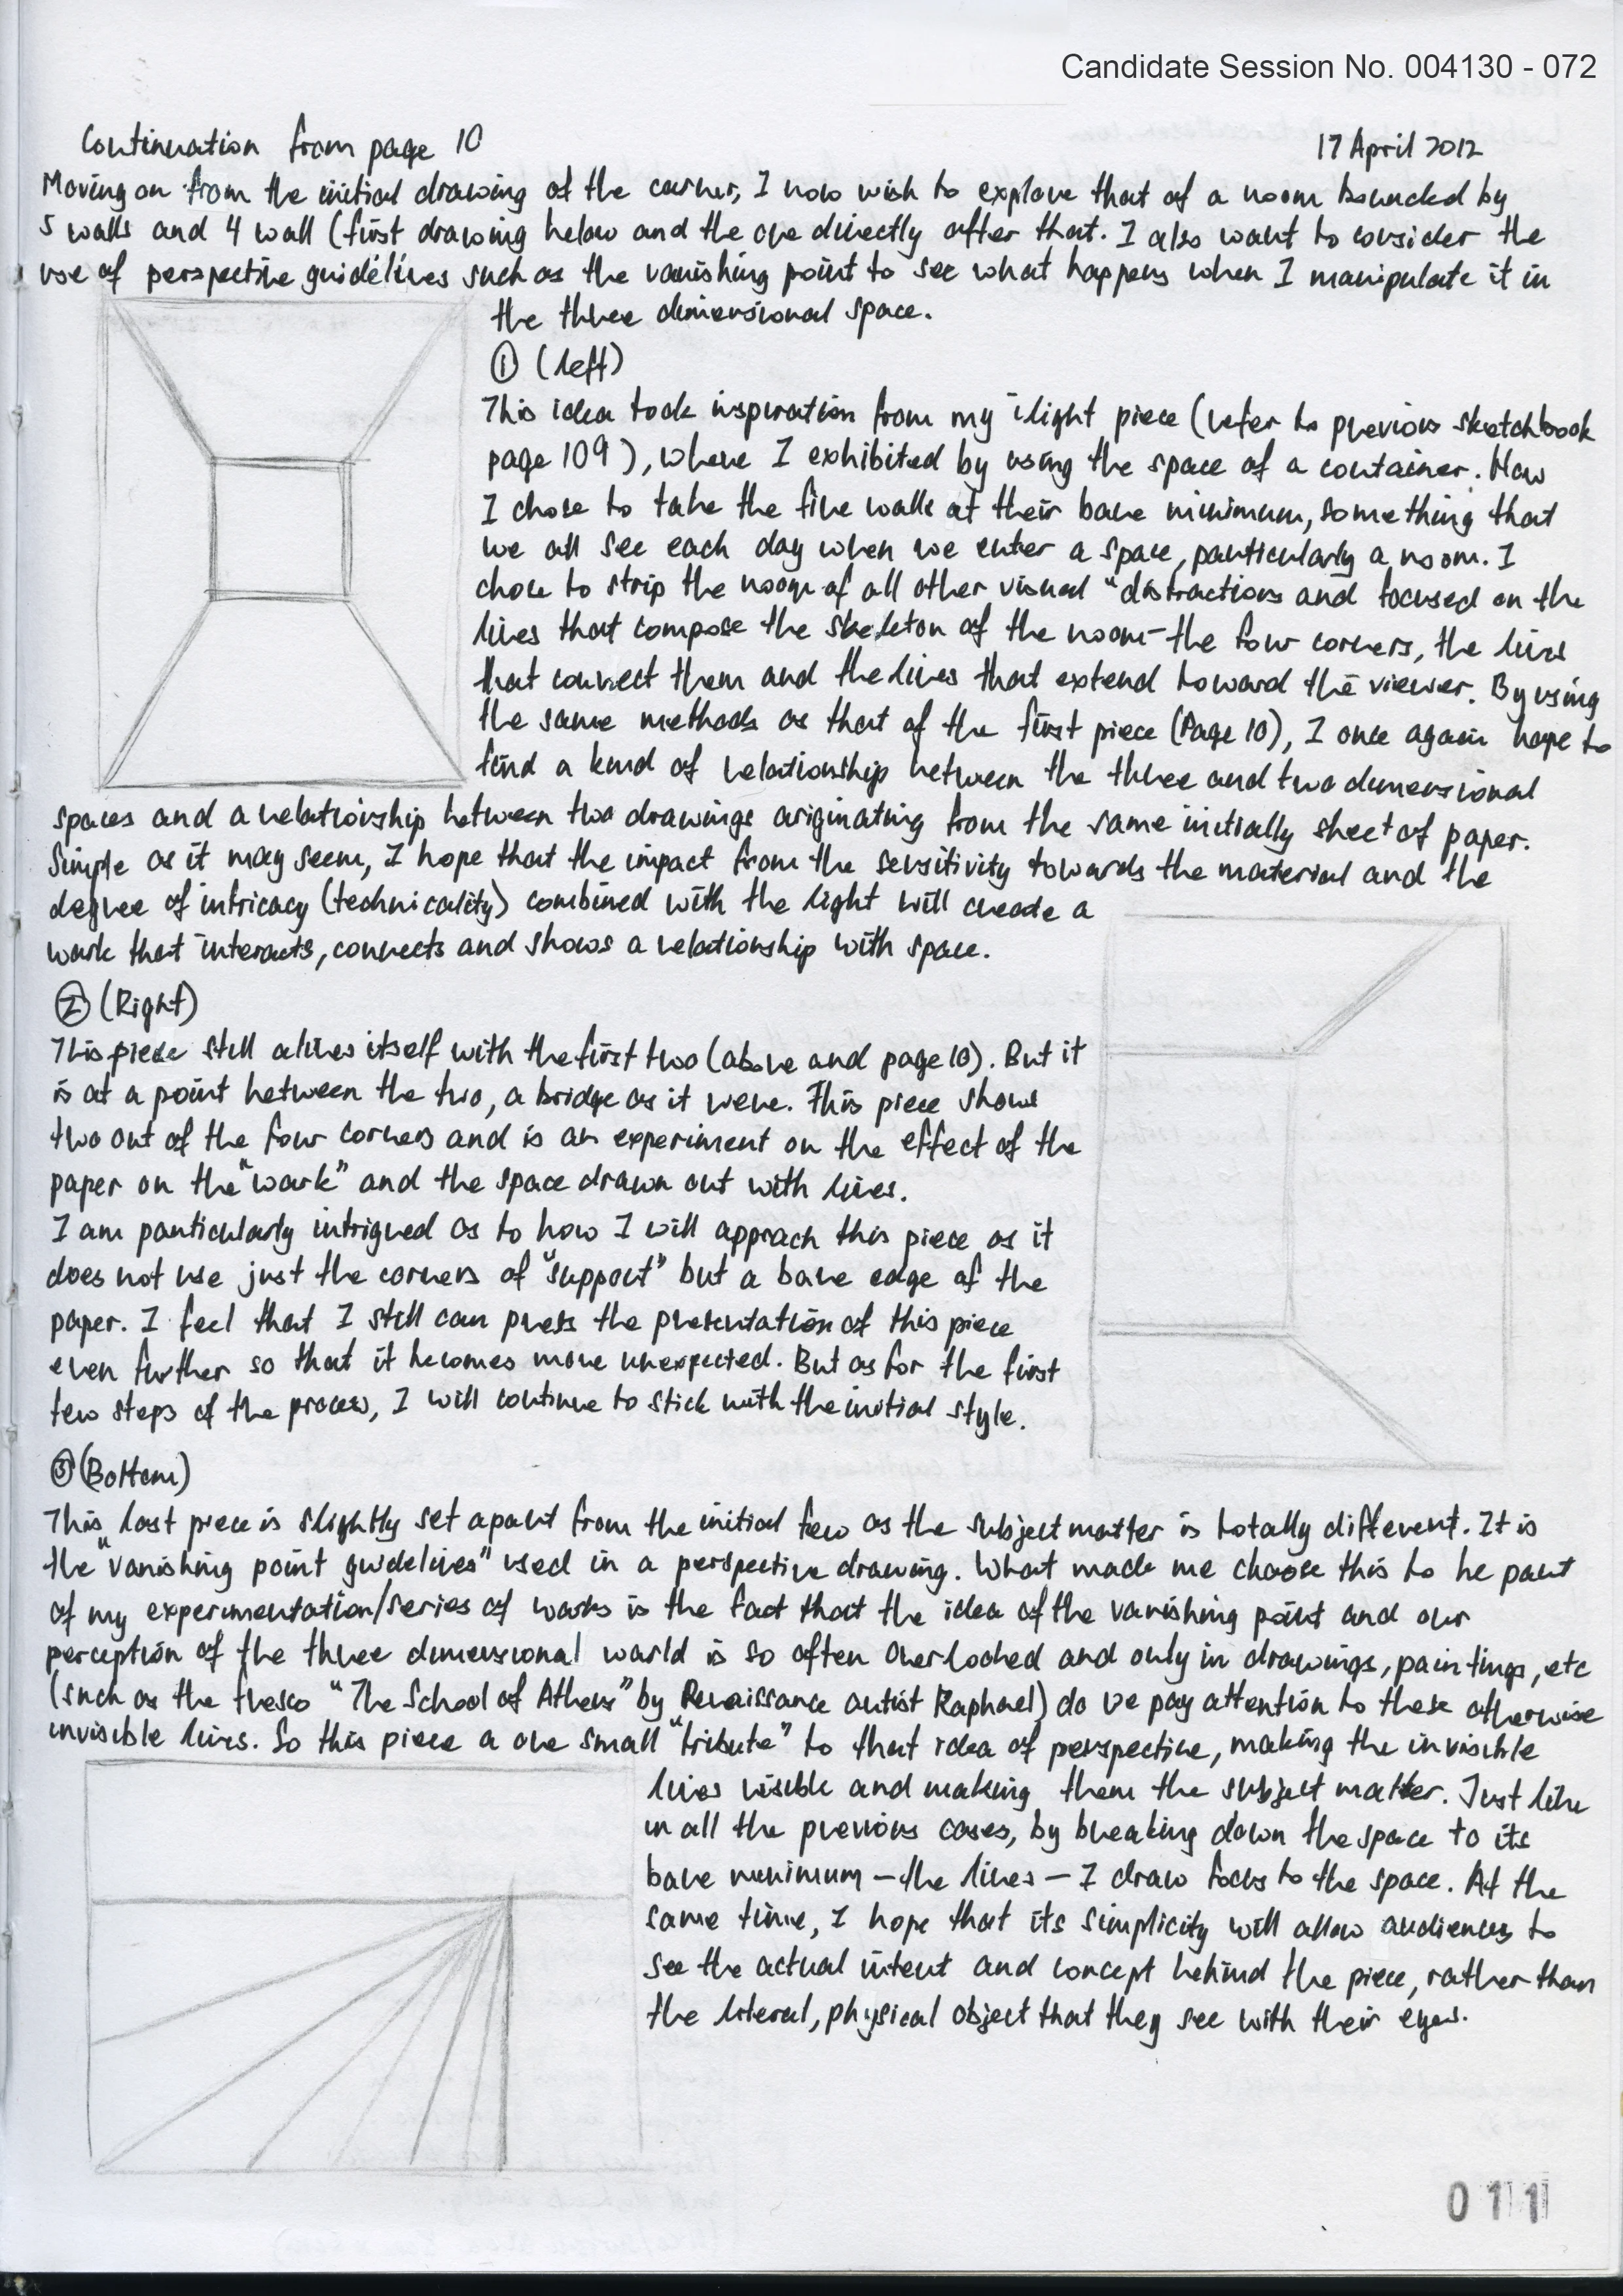 Candidate Session No. 004130 - 072
Continuation from page 10
17 April 2012
Moving on from the initial drawing of the corner, I now wish to explore that of a room bounded by
5 walls and 4 wall (first drawing below and the one directly after that. I also want to consider the
use of perspective guidelines such as the vanishing point to see what happens when I manipulate it in
the three dimensional space.
① (left)
This idea took inspiration from my ilight piece (refer to previous sketchbook
page 109), where I exhibited by using the space of a container. Now
I chose to take the five walls at their bare minimum, something that
we all see each day when we enter a space, particularly a room. I
chose to strip the room of all other visual "distractions and focused on the
lines that compose the skeleton of the room - the four corners, the lines
that connect them and the lines that extend toward the viewer. By using
the same methods as that of the first piece (Page 10), I once again hope to
find a kind of relationship between the three and two dimensional
spaces and a relationship between two drawings originating from the same initially sheet of paper.
Simple as it may seem, I hope that the impact from the sensitivity towards the material and the
degree of intricacy (technicality) combined with the light will create a
work that interacts, connects and shows a relationship with space.
② (Right)
This piece still alines itself with the first two (above and page 10). But it
is at a point between the two, a bridge as it were. This piece shows
two out of the four corners and is an experiment on the effect of the
paper on the "work" and the space drawn out with lines.
I am particularly intrigued as to how I will approach this piece as it
does not use just the corners of "support" but a bare edge of the
paper. I feel that I still can press the presentation of this piece
even further so that it becomes more unexpected. But as for the first
few steps of the process, I will continue to stick with the initial style.
③ (Bottom)
This last piece is slightly set apart from the initial few as the subject matter is totally different. It is
the "vanishing point guidelines" used in a perspective drawing. What made me choose this to be part
of my experimentation/series of works is the fact that the idea of the vanishing point and our
perception of the three dimensional world is so often overlooked and only in drawings, paintings, etc
(such as the fresco "The School of Athens" by Renaissance artist Raphael) do we pay attention to these otherwise
invisible lines. So this piece a one small "tribute" to that idea of perspective, making the invisible
lines visible and making them the subject matter. Just like
in all the previous cases, by breaking down the space to its
bare minimum - the lines - I draw focus to the space. At the
same time, I hope that its simplicity will allow audiences to
see the actual intent and concept behind the piece, rather than
the literal, physical object that they see with their eyes.
011